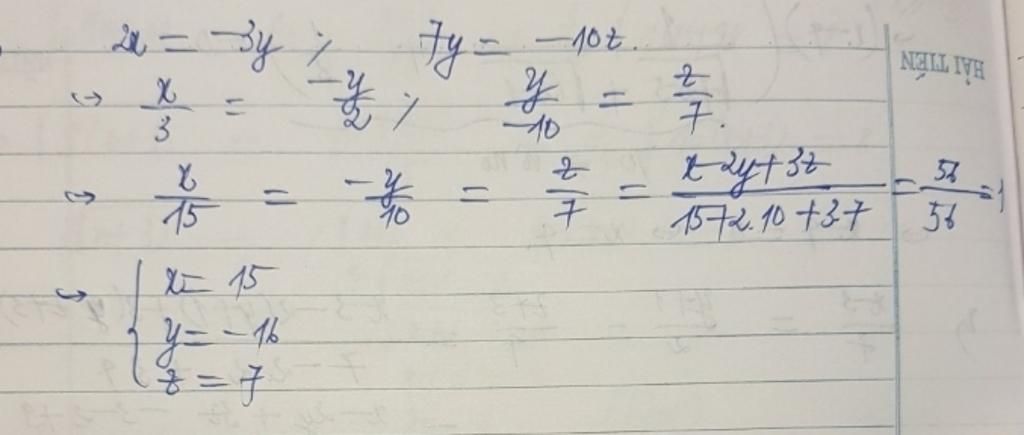 2x = -3y ; 7y = -10z.
↪ x/3 = -y/2 ; y/-10 = z/7.
↪ x/15 = -y/10 = z/7 = x-2y+3z/15+2.10+3.7 = 56/56 = 1
↪ { x = 15
y = -16
z = 7
HẢI TIẾN